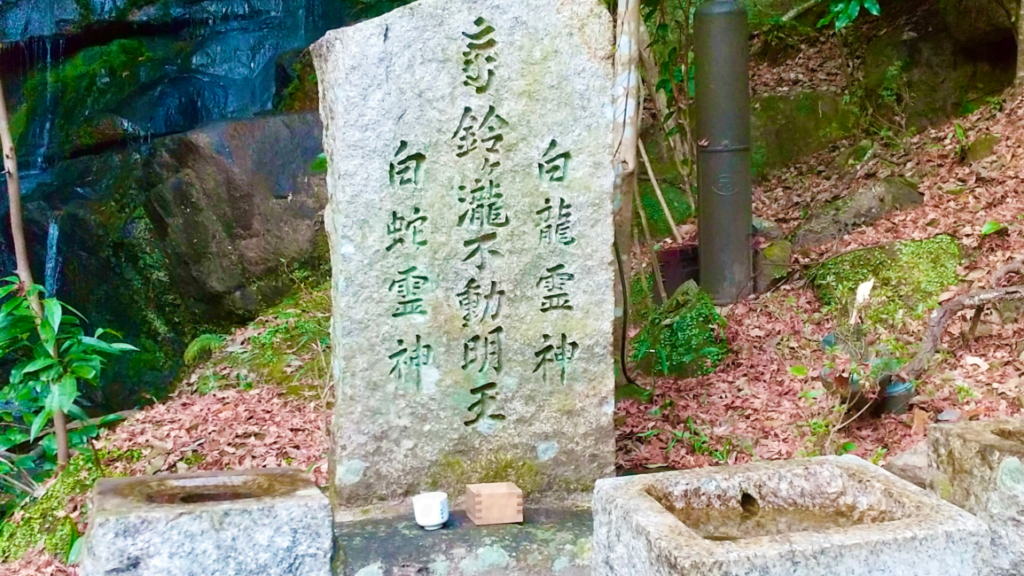 白龍霊神
鈴ヶ瀧不動明王
白蛇霊神